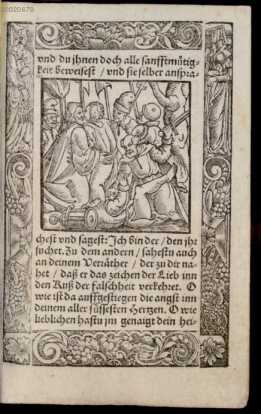 vnd du jhnen doch alle sanfftmütig-
keit beweisest / vnd sie selber anspra-
chest vnd sagest: Ich bin der / den jhr
suchet. Zu dem andern / sahestu auch
an deinem Verräther / der zu dir na-
het / daß er das zeichen der Lieb inn
den Kuß der falschheit verkehret. O
wie ist da auffgestiegen die angst inn
deinem aller süssesten Hertzen. O wie
lieblichen hastu jm genaigt dein hei-